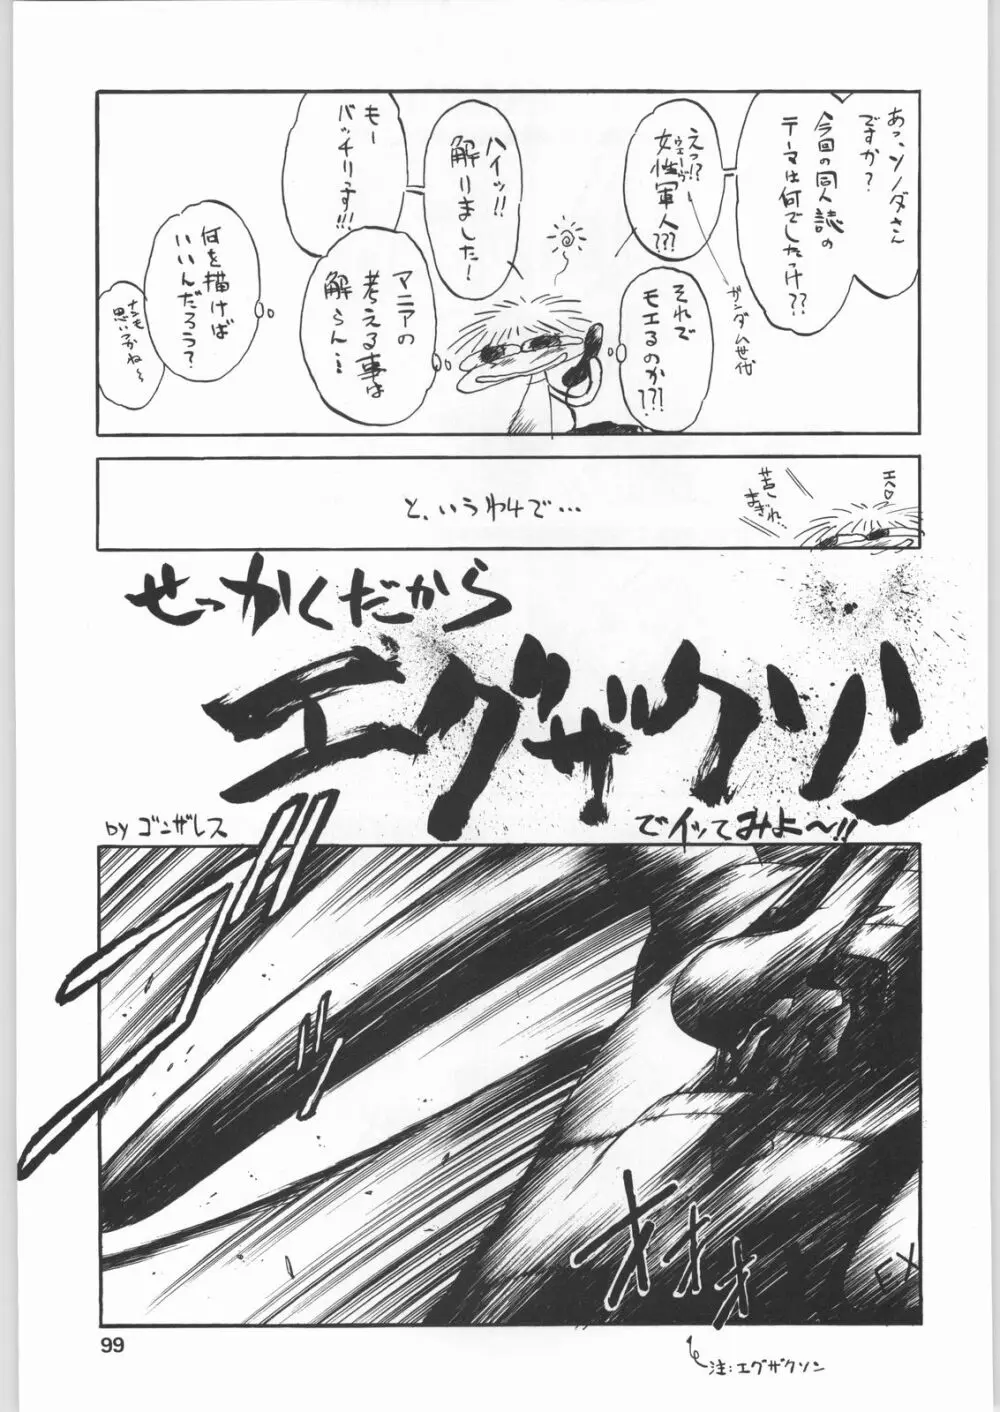 あっ、ソノダさん
ですか?
今回の同人誌の
テーマは何でしたっけ??
えっ!?
ウェーブ
女性軍人???
ガンダム世代
それで
モエるのか???
ハイッ!!
解りました!
もー
バッチリっす!!!
マニアの
考える事は
解らん…
何を描けば
いいんだろう?
ナンも
思いつかね〜
と、いうわけで…
エヘ♡
苦し
まぎれ…
せっかくだから
エグザクソン
by ゴンザレス
でイッてみよ〜!!
ブ
オオオ
EX
99
注:エグザクソン